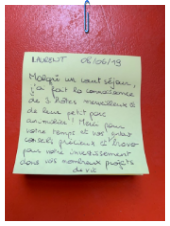 LAURENT 08/06/19
Malgré un court séjour,
j'ai fait la connaissance
de 3 hôtes merveilleux &
de leur petit parc
animalier ! Merci pour
votre temps et vos
conseils précieux & bravo
pour votre investissement
dans vos nombreux projets
de vie